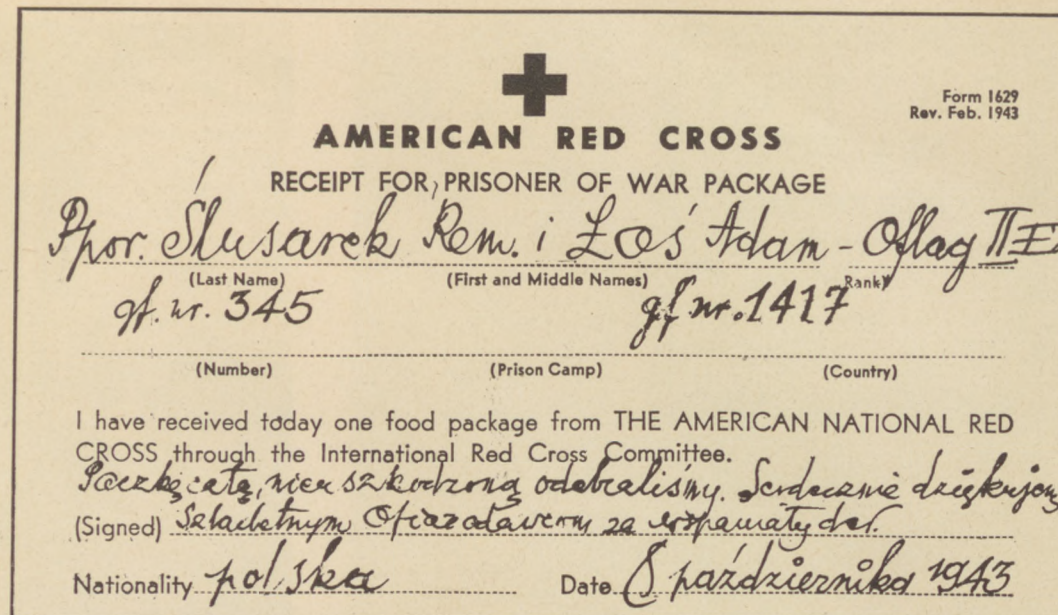 Form 1629
Rev. Feb. 1943
AMERICAN RED CROSS
RECEIPT FOR PRISONER OF WAR PACKAGE
Ppor. Ślusarek Rem. i Łoś Adam - Oflag II E
(Last Name) (First and Middle Names) Rank
gf. nr. 345 gf nr. 1417
(Number) (Prison Camp) (Country)
I have received today one food package from THE AMERICAN NATIONAL RED
CROSS through the International Red Cross Committee.
Paczkę całą, nieuszkodzoną odebraliśmy. Serdecznie dziękujemy
(Signed) Szlachetnym Ofiarodawcom za wspaniały dar.
Nationality polska Date 8 października 1943